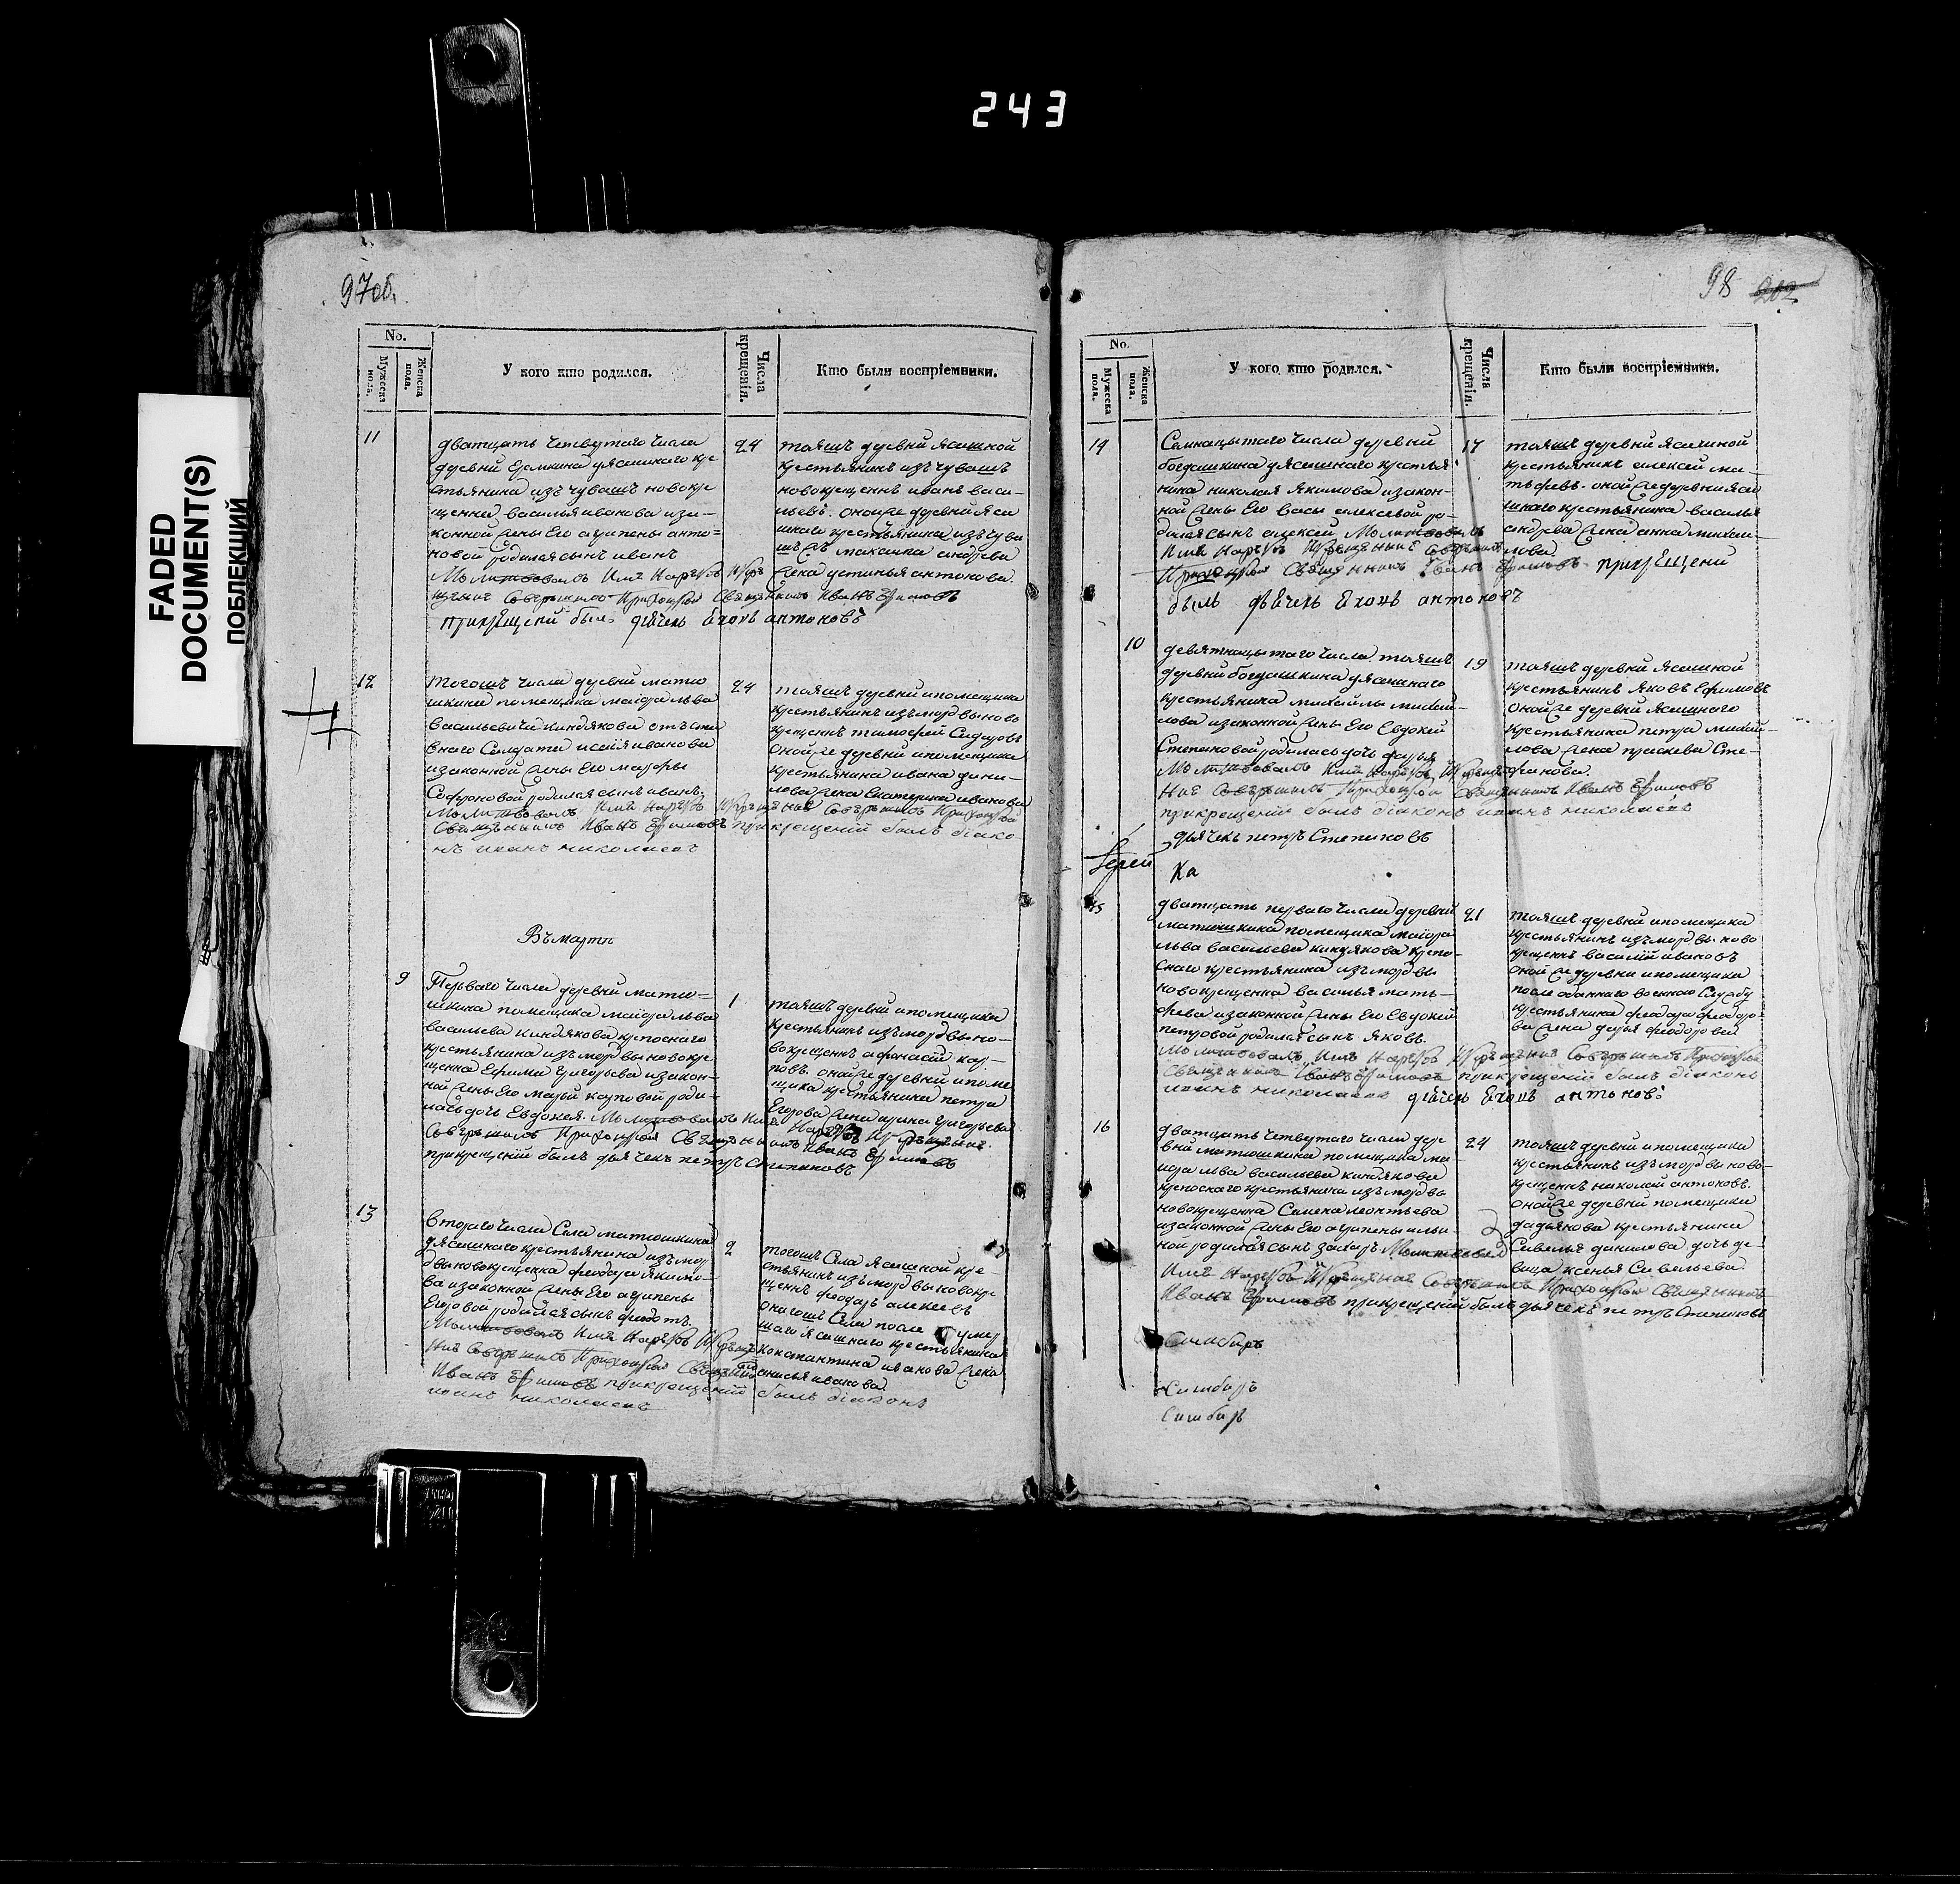 243
FADED
DOCUMENT(S)
ПОБЛЕКШИЙ
97об.
No.
Мужеска пола.
Женска пола.
У кого кто родился.
Числа крещенія.
Кто были воспріемники.
11
дватцать четвертаго числа
деревни Еремкина у ясашнаго кре
стьянина изъ чувашъ новокре
щенна василья иванова иза=
конной жены Его агрипены анто=
новой родился сынъ иванъ
Молитвовалъ Имя Нарѣкъ И Кре
щѣние Совѣршилъ Приходской Свящѣнникъ Иванъ Ефимовъ
прикрещении былъ дьячекъ антоновъ
24
тояжъ деревни Ясашной
крестьянинъ изъ чувашъ
новокрещенъ иванъ васи-
льевъ. оной же деревни яса
шнаго крестьянина изъ чува
шъ андреева
жена устинья антонова.
12
тогожъ числа деревни матю
шкина помещика маиора льва
васильевича киндякова отъста
внаго Солдата исаия иванова
изаконной жены Его марфы
Софроновой родился сынъ иванъ.
Молитвовалъ Имя Нарѣкъ И Крѣщѣние Совѣршилъ Приходской
Свящѣнникъ Иванъ Ефимовъ прикрещении былъ діако
нъ иванъ николаевъ
24
тояжъ деревни и помещика
крестьянинъ изъ мордвы ново
крещенъ тимофей Сидоровъ
оной же деревни и помещика
крестьянина ивана дани-
лова жена Екатерина иванова
Въ мартѣ
9
Перваго числа деревни матю=
шкина помещика маиора льва
васильева киндякова крепоснаго
крестьянина изъ мордвы новокре
щенна Ефима Григорьева изакон-
ной жены Его марьи карповой роди-
лась дочь Евдокея. Молитвовалъ Имя Нарѣкъ И Крѣщѣние
Совѣршилъ Приходской Свящѣнникъ Иванъ Ефимовъ
прикрещении былъ дьячекъ петръ Степановъ
1
тояжъ деревни и помещика
крестьянинъ изъ мордвы но-
вокрещенъ афонасий кар-
повъ. оной же деревни и поме
щика крестьянина петра
Егорова жена ирина Григорьева
13
втораго числа Села матюшкина
у ясашнаго крестьянина изъ мор
двы новокрещенна феодора якимо-
ва изаконной жены Его агрипены
Егоровой родился сынъ федотъ.
Молитвовалъ Имя Нарѣкъ И Крѣщѣ
ние Совѣршилъ Приходской Свящѣнникъ
Иванъ Ефимовъ прикрещении былъ діаконъ
иванъ николаевъ
2
тогожъ Села Ясашной кре-
стьянинъ изъ мордвы новокре
щенъ феодоръ алексеевъ
оногожъ Села после умер
шаго ясашнаго крестьянина
константина иванова жена
анисья иванова
98
202
No.
Мужеска пола.
Женска пола.
У кого кто родился.
Числа крещенія.
Кто были воспріемники.
14
Семнацытаго числа деревни
богдашкина у ясашнаго крестья
нина николая Якимова изакон-
ной жены Его васы алексевой ро-
дился сынъ алексей Молитвовалъ
Имя Нарѣкъ И Крѣщѣние Совѣршилъ
Приходской Свящѣнникъ Иванъ Ефимовъ. прикрещении
былъ дьячекъ антоновъ
17
тояжъ деревни Ясашной
крестьянинъ алексей ма-
тьфевъ. оной же деревни яса
шнаго крестьянина василья
андреева жена анна михаи-
лова
10
девятнацытаго числа тояжъ
деревни богдашкина у ясашнаго
крестьянина михайлы михай-
лова изаконной жены Его Евдокеи
Степановой родилась дочь дарья
Молитвовалъ Имя Нарѣкъ И Крѣщѣ
ние Совѣршилъ Приходской Свящѣнникъ Иванъ Ефимовъ
прикрещении былъ діаконъ иванъ николаевъ
дьячекъ петръ Степановъ
19
тояжъ деревни Ясашной
крестьянинъ Яковъ Ефимовъ
оной же деревни Ясашнаго
крестьянина петра михай-
лова жена прасковья Сте-
фанова.
Іерей
Ка
15
дватцать перваго числа деревни
матюшкина помещика маиора
льва васильева киндякова крепо-
снаго крестьянина изъ мордвы
новокрещенна василья мать-
фева изаконной жены Его Евдокеи
петровой родился сынъ Яковъ.
Молитвовалъ Имя Нарѣкъ И Крѣщѣние Совѣршилъ Приходской
Свящѣнникъ Иванъ Ефимовъ прикрещении былъ діаконъ
иванъ николаевъ дьячекъ антоновъ
21
тояжъ деревни и помещика
крестьянинъ изъ мордвы ново
крещенъ василий ивановъ
оной же деревни и помещика
после отданнаго военною Службу
крестьянина феодора феодоро-
ва жена дарья феодоровой
16
дватцать четвертаго числа дере
вни матюшкина помещика ма-
иора льва васильева киндякова
крепоснаго крестьянина изъ мордвы
новокрещенна Семена леонтьева
изаконной жены Его агрипены ильи-
ной родился сынъ захаръ Молитвовалъ
Имя Нарѣкъ И Крѣщѣние Совѣршилъ Приходской Свящѣнникъ
Иванъ Ефимовъ прикрещении былъ дьячекъ петръ Степановъ
24
тояжъ деревни и помещика
крестьянинъ изъ мордвы ново-
крещенъ николай антоновъ.
оной же деревни помещика
дадьянова крестьянина
Савелья данилова дочь де-
вица ксенья Савельева
Симбиръ
Симбиръ
Симбир